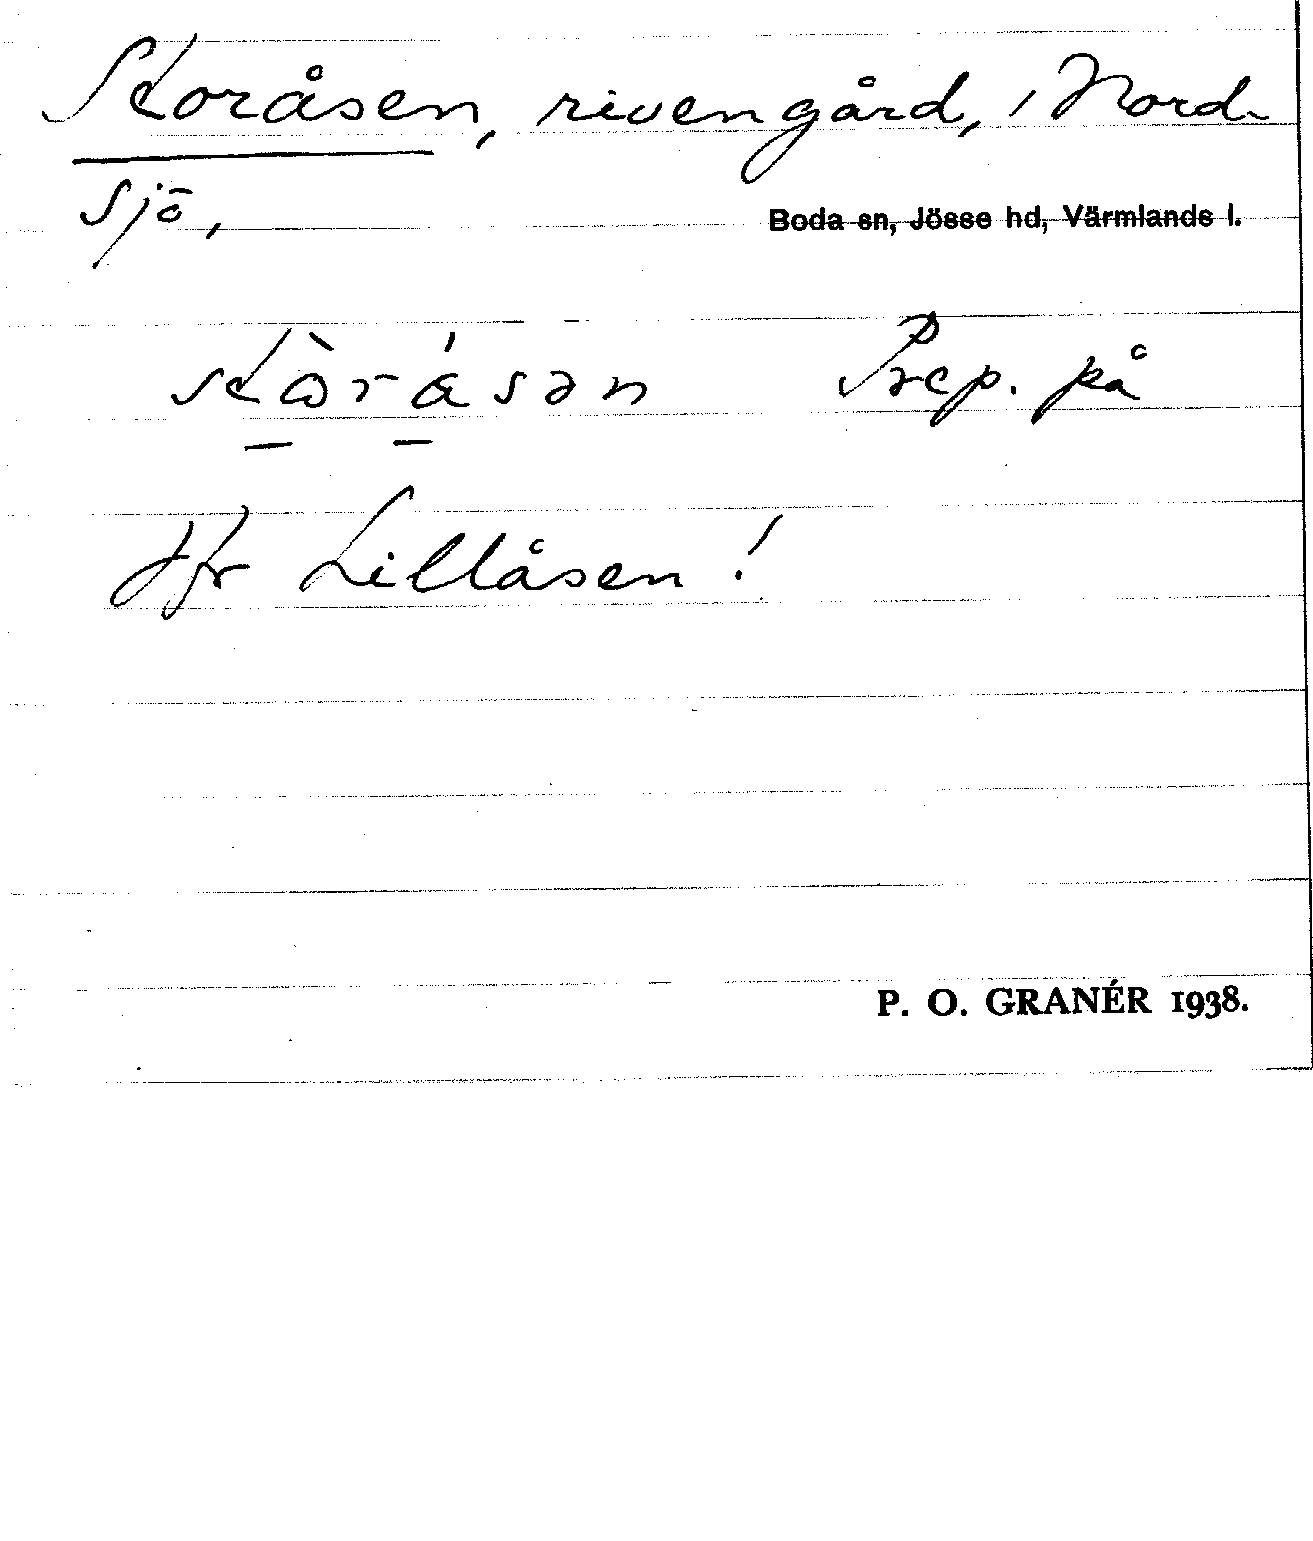 Storåsen, riven gård, i Nord-
sjö,
Boda sn, Jösse hd, Värmlands l.
Prep. på
Jfr Lillåsen!
P. O. GRANÉR 1938.